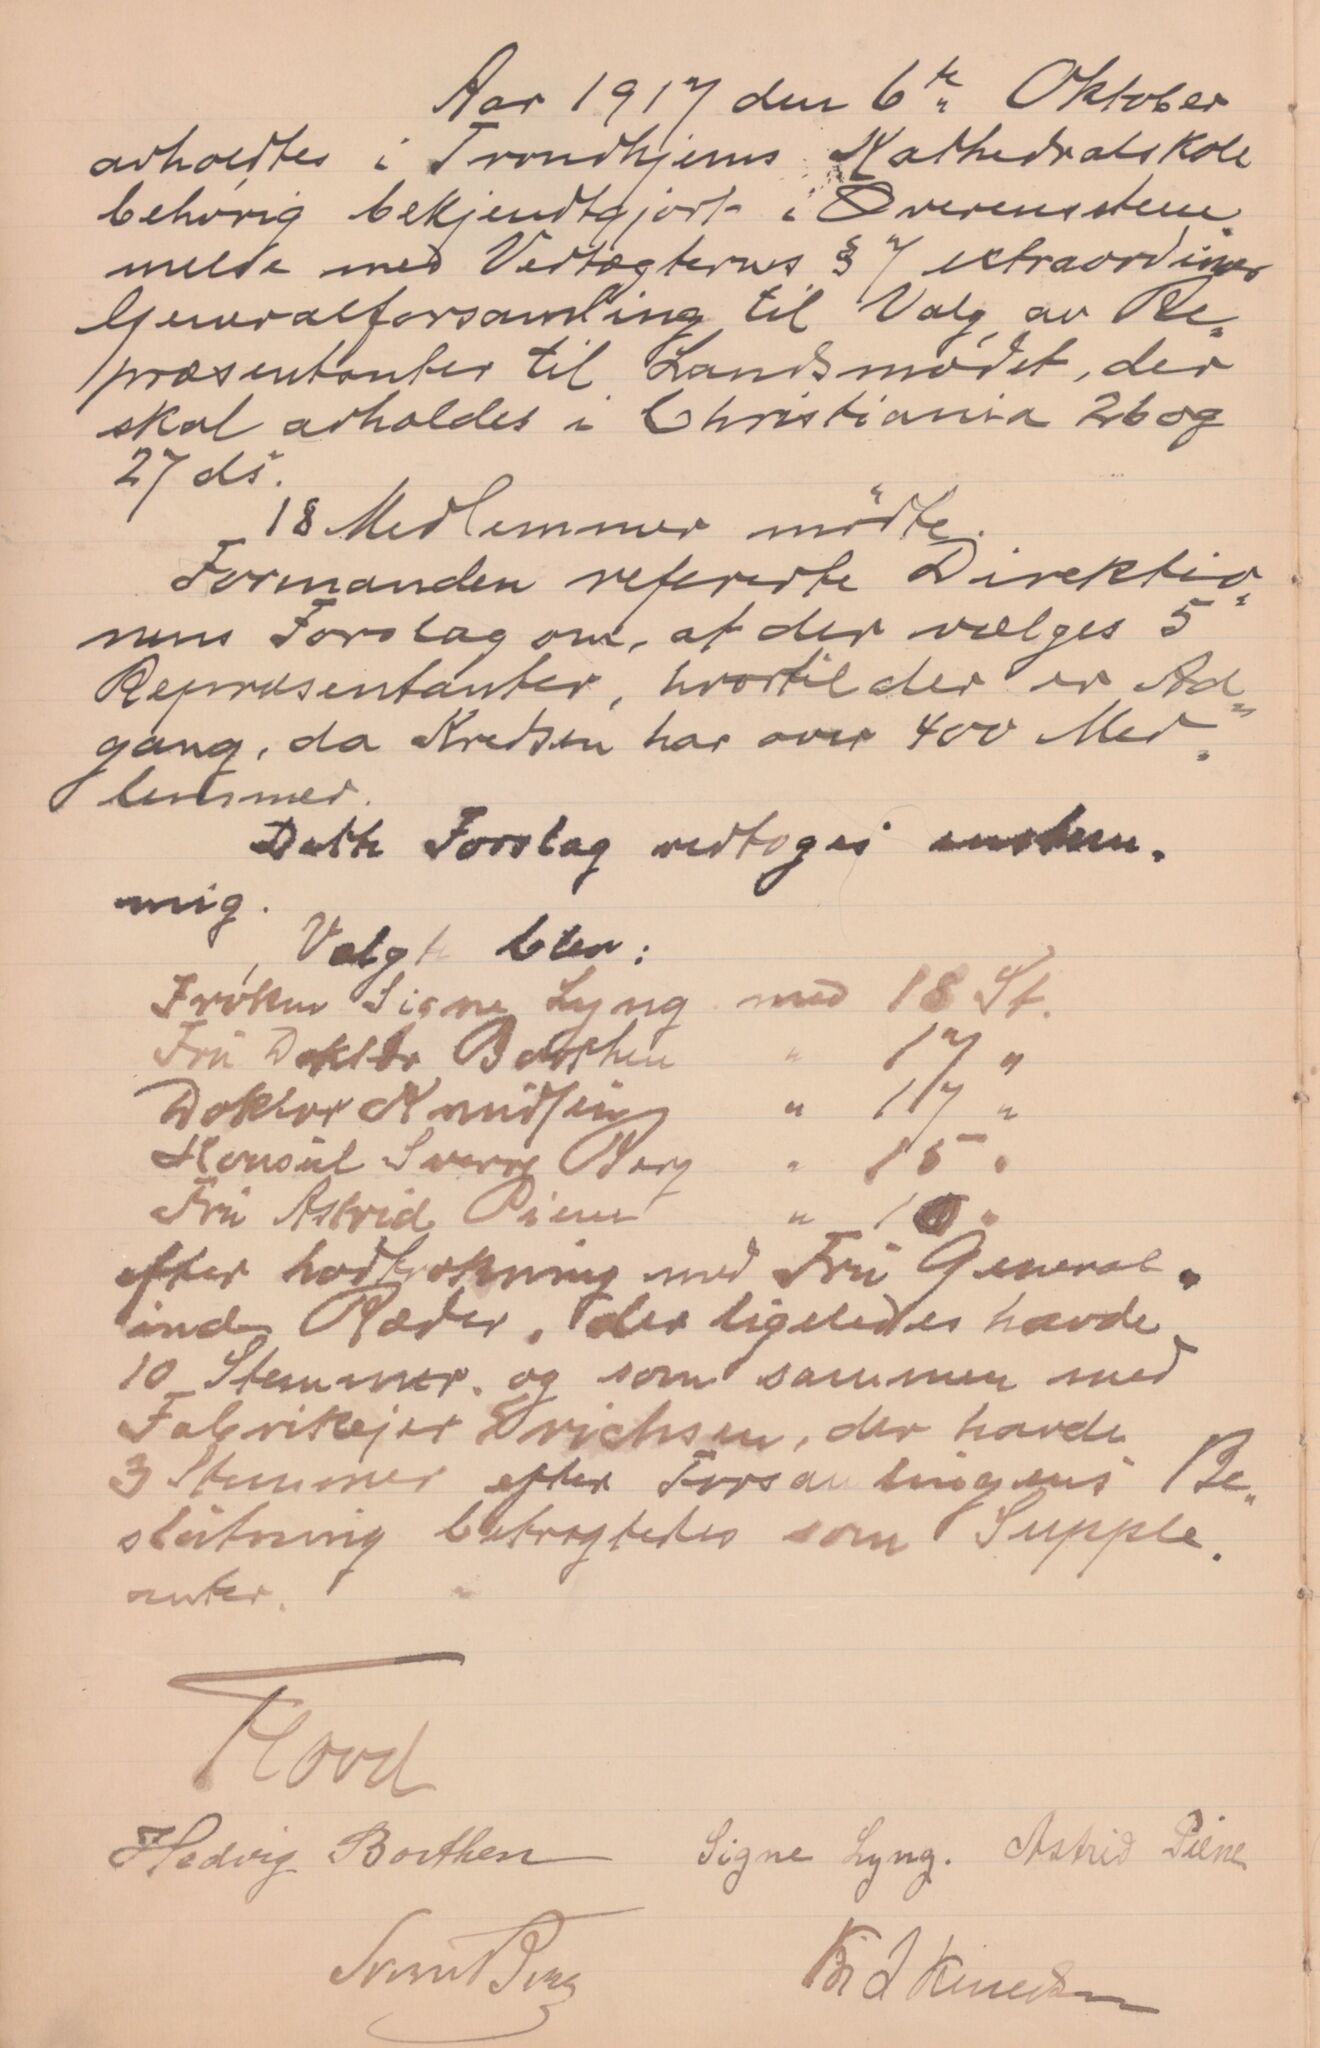 Aar 1917 den 6te Oktober
avholdtes i Trondhjems Kathedralskole
behørig bekjendtgjort i Overenstem
melse med Vedtægternes § 7 extraordinær
Generalforsamling til Valg av Re„
præsentanter til Landsmødet, der
skal avholdes i Christiania 26 og
27 ds.
18 Medlemmer mødte.
Formanden refererte Direktio„
nens Forslag om, at der vælges 5
Repræsentanter, hvortil der er Ad„
gang, da Kredsen har over 400 Med„
lemmer.
Dette Forslag vedtoges enstem„
mig.
Valgte blev:
Frøken Signe Lyng med 18 St.
Fru Doktor Borthen „ 17 „
Doktor Knudsen „ 17 „
Konsul Sverre Berg „ 15 „
Fru Astrid Piene „ 10 „
efter lodtrækning med Fru General„
inde Ræder, der ligeledes havde
10 Stemmer. og som sammen med
Fabrikejer Erichsen, der havde
3 Stemmer efter Forsamlingens Be„
slutning betragtedes som Supple„
anter.
Flood
Hedvig Borthen Signe Lyng. Astrid Piene
Sverre Berg